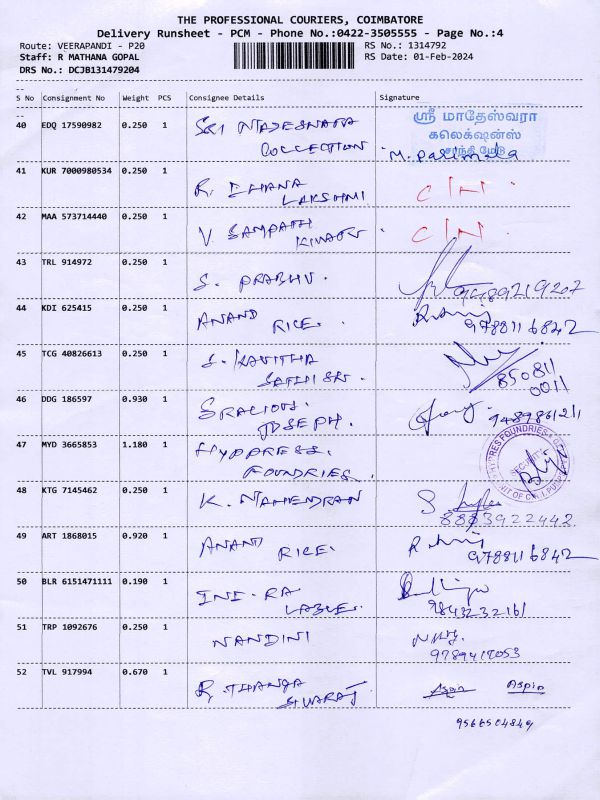 THE PROFESSIONAL COURIERS, COIMBATORE
Delivery Runsheet - PCM - Phone No.:0422-3505555 - Page No.:4
Route: VEERAPANDI - P20 RS No.: 1314792
Staff: R MATHANA GOPAL RS Date: 01-Feb-2024
DRS No.: DCJB131479204
S No Consignment No Weight PCS Consignee Details Signature
40 EDQ 17590982 0.250 1 SRI
COLLECTION
ஸ்ரீ மாதேஸ்வரா
கலெக்ஷன்ஸ்
M. Parimala
41 KUR 7000980534 0.250 1 R. DHANA
LAKSHMI
42 MAA 573714440 0.250 1 V SAMPATH
KUMAR
43 TRL 914972 0.250 1 S. PRABHU.
9489219207
44 KDI 625415 0.250 1 ANAND
RICE.
9788116842
45 TCG 40826613 0.250 1 S. KAVITHA
850811
0011
46 DDG 186597 0.930 1
JOSEPH.
9489861211
47 MYD 3665853 1.180 1 HYDPRESS.
FOUNDRIES.
48 KTG 7145462 0.250 1 K. MAHENDRAN
8883922442
49 ART 1868015 0.920 1 ANAND
RICE.
9788116842
50 BLR 6151471111 0.190 1 INI-RA
LABLE.
9843232161
51 TRP 1092676 0.250 1 NANDINI
9789417053
52 TVL 917994 0.670 1 R. THANGA
SIVARAJ
Aspin Aspin
9566504849